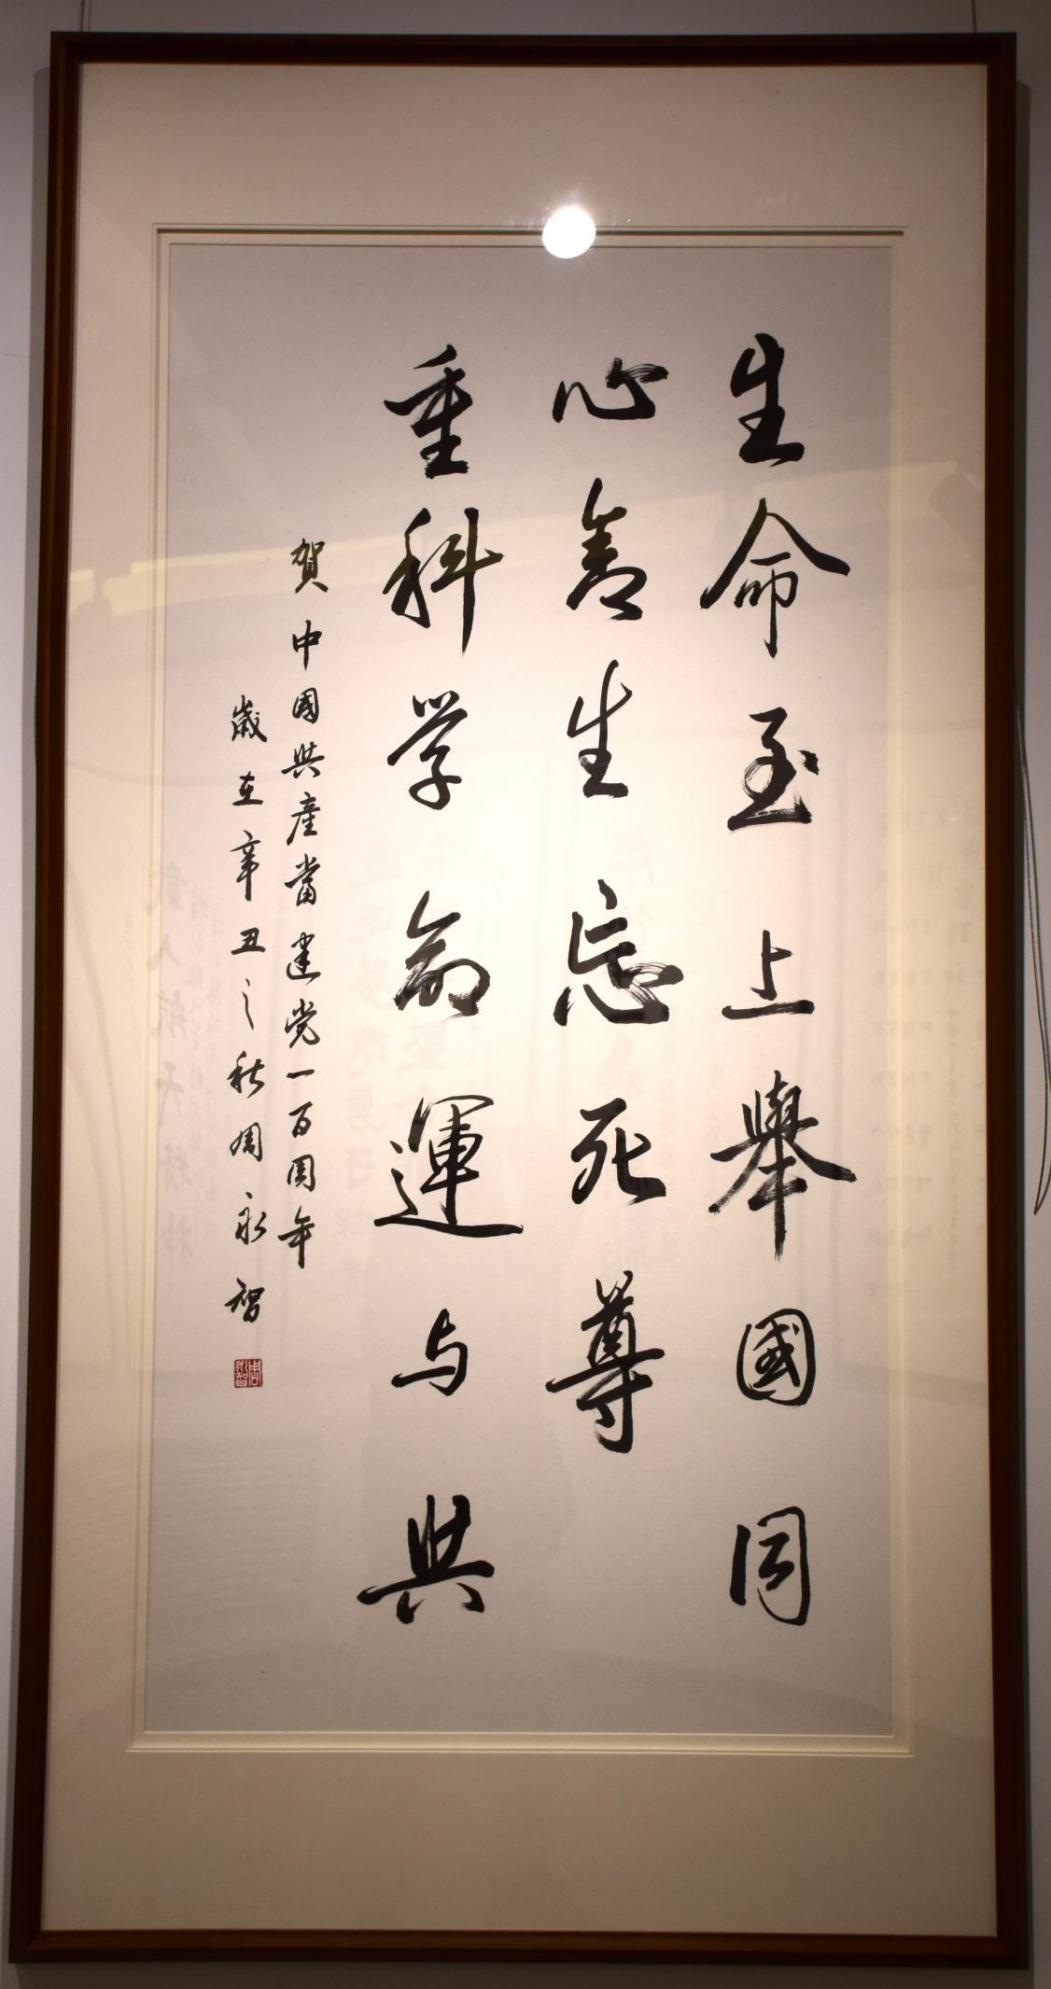 生命至上舉國同
心舍生忘死尊
重科学命運与共
賀中國共產當建党一百周年
歲在辛丑之秋周永智
周永智